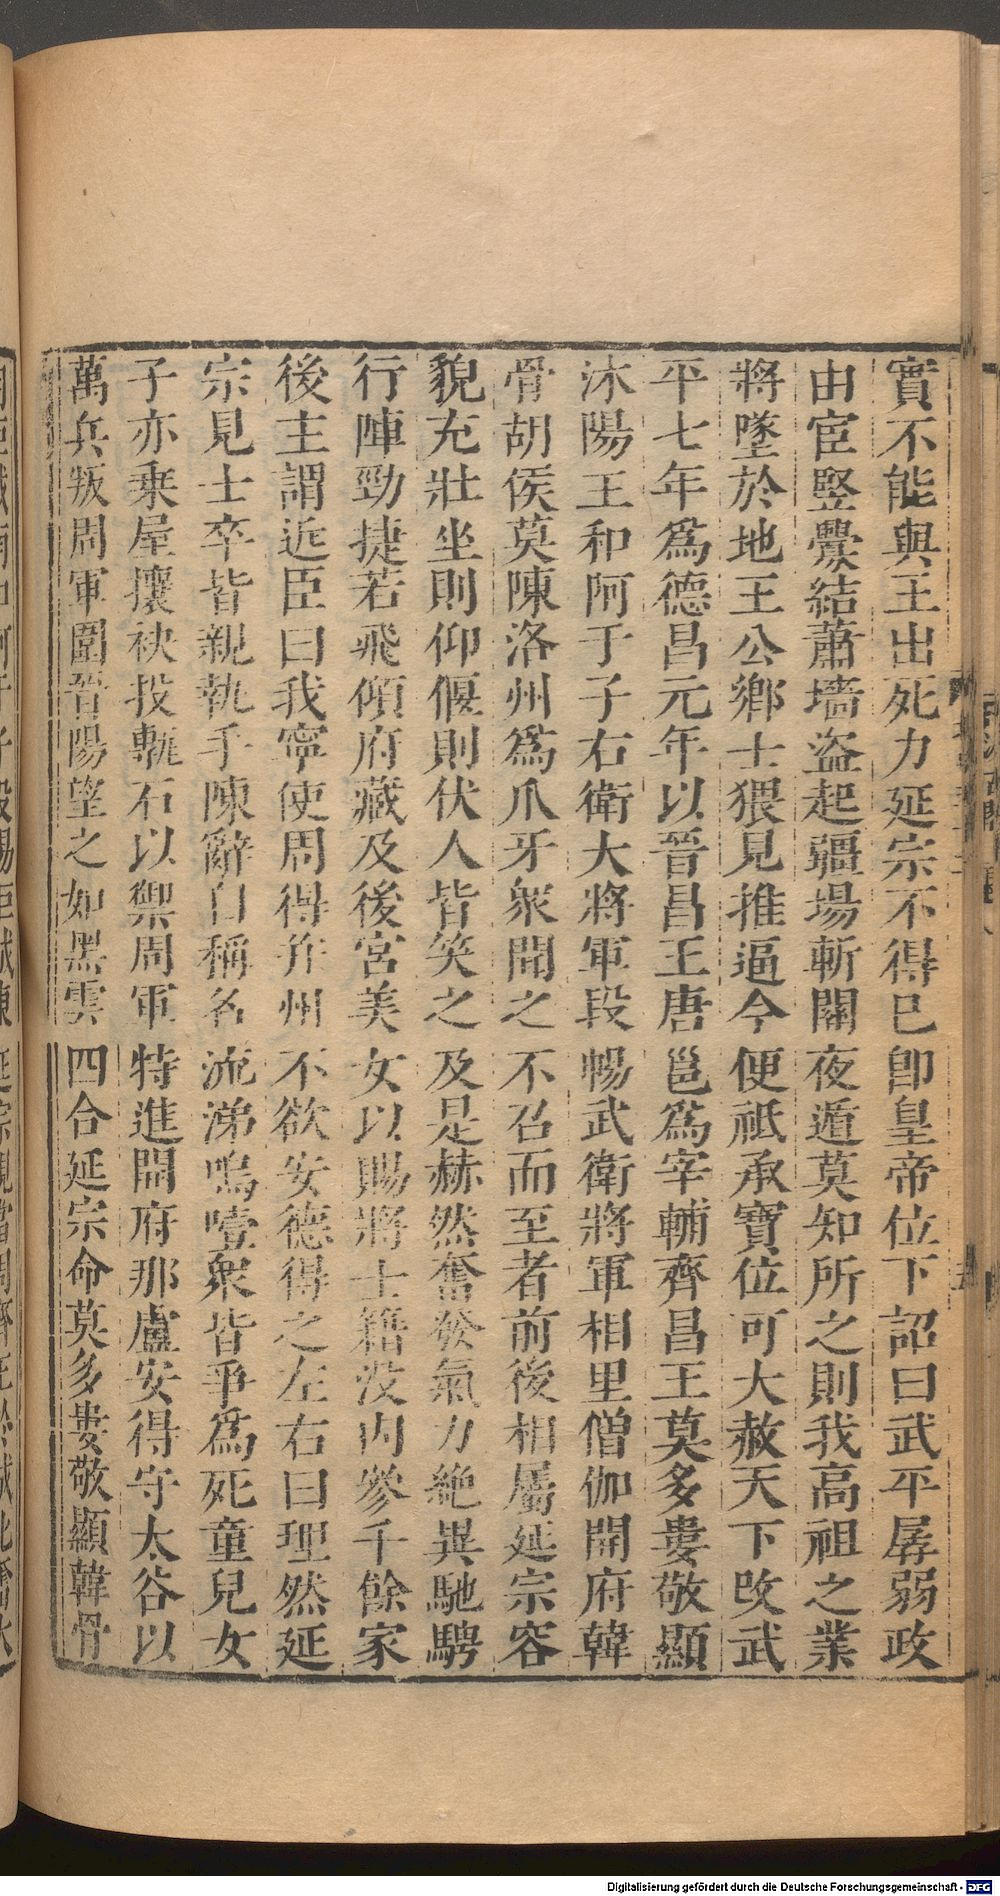 實不能與王出死力延宗不得已卽皇帝位下詔曰武平孱弱政
由宦竪釁結蕭墻盗起疆場斬關夜遁莫知所之則我高祖之業
將墜於地王公鄉士猥見推逼今便祗承寶位可大赦天下改武
平七年爲德昌元年以晉昌王唐邕爲宰輔齊昌王莫多婁敬顯
沐陽王和阿于子右衛大將軍段暢武衛將軍相里僧伽開府韓
骨胡侯莫陳洛州爲爪牙衆聞之不召而至者前後相屬延宗容
貌充壯坐則仰偃則伏人皆笑之及是赫然奮發氣力絶異馳騁
行陣勁捷若飛傾府藏及後宮美女以賜將士籍没内參千餘家
後主謂近臣曰我寧使周得并州不欲安德得之左右曰理然延
宗見士卒皆親執手陳辭自稱名流涕嗚噎衆皆爭爲死童兒女
子亦乗屋攘袂投甎石以禦周軍特進開府那盧安得守太谷以
萬兵叛周軍圍晉陽望之如黑雲四合延宗命莫多婁敬顯韓骨
Digitalisierung gefördert durch die Deutsche Forschungsgemeinschaft - DFG